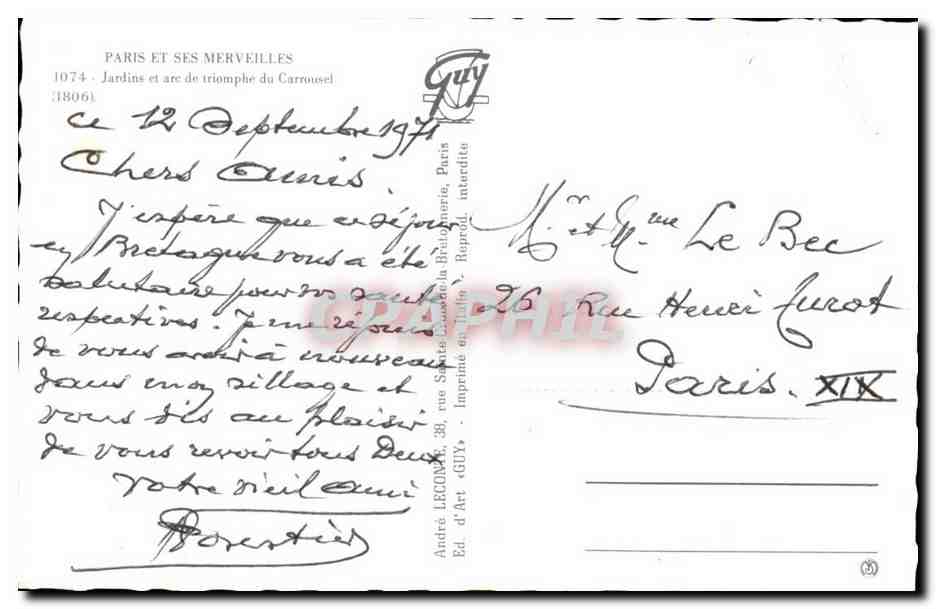 PARIS ET SES MERVEILLES
1074 - Jardins et arc de triomphe du Carrousel
(1806).
Guy
ce 12 Septembre 1971
Chers Amis.
J'espère que ce séjour
en Bretagne vous a été
salutaire pour vos santés
respectives. Je me réjouis
de vous avoir à nouveau
dans mon sillage et
vous dis au plaisir
de vous revoir tous Deux
Votre vieil ami
Forestier
André LECONTE, 38, rue Sainte-Croix-de-la-Bretonnerie, Paris
Ed. d'Art «GUY» - Imprimé en Italie - Reprod. interdite
CPAPHIL
Mr. et Mme Le Bec
26 Rue Henri Turot
Paris. XIX